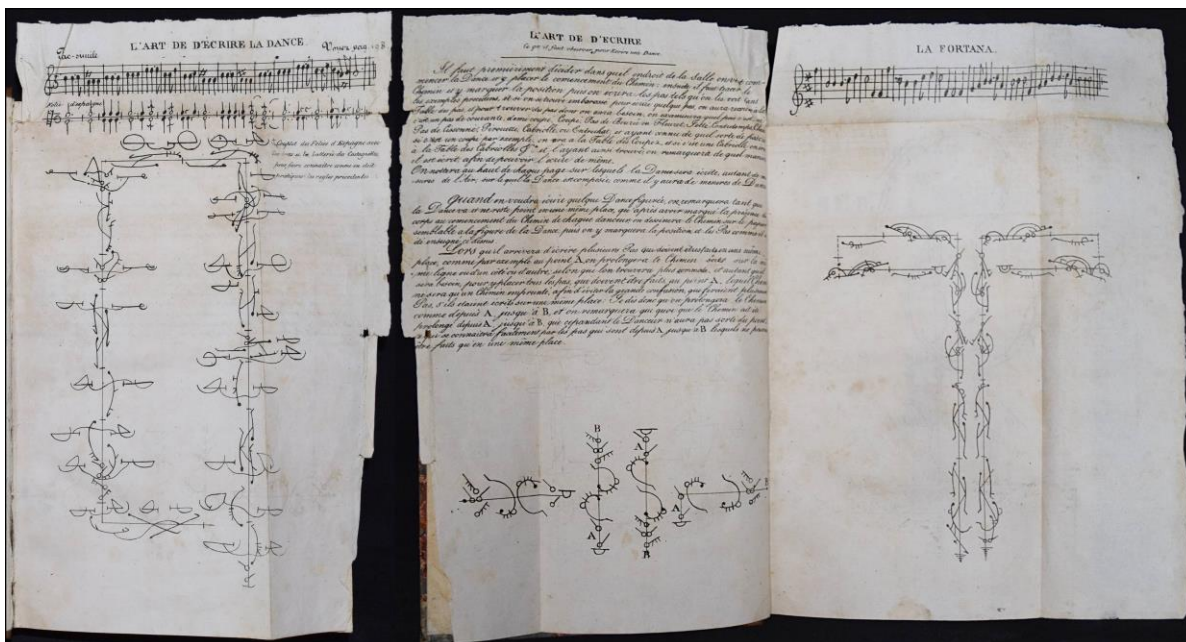 L'ART DE D'ÉCRIRE LA DANCE.
Fac-simile
Voyez pag. 198
Folie d'Espagne
Couplet des Folies d'Espagne avec
la baterie des Castagnettes
pour faire connaitre comme on doit
pratiquer les regles precedentes
L'ART DE D'ECRIRE
Ce qu'il faut observer pour Ecrire une Dance.
Il faut premierement décider dans quel endroit de la Salle on veut com-
mencer la Dance et y placer le comencement du Chemin; ensuite il faut tracer le
Chemin et y marquer la position puis on ecrira les pas tels qu'on les voit dans
les exemples precedens, et si on se trouve embarassé pour ecrire quelque pas, on aura recours à la
Table des pas, et pour trouver
c'est un pas de courante, demi coupé, Coupé, Pas de Bourée ou Fleuret, Jeté, Contretemps, Chassé
Pas de Sissonne, Pirouette, Cabriolle, ou Entrechat, et ayant connu de quel sorte de pas
si c'est un coupé par exemple, on ira à la Table des Coupez, et si c'est une Cabriolle, on ira
à la Table des Cabriolles &c. et, l'ayant ainsi trouvé, on remarquera de quel maniere
il est écrit, afin de pouvoir l'ecrire de même.
On nottera au haut de chaque page sur lesquels la Dance sera ecrite, autant de me-
sures de l'Air, sur lequel la Dance est composée, comme il y aura de mesures de Dance
Quand on voudra ecrire quelque Dance figurée, on remarquera tant que
la Dance va et ne reste point en une même place, qu'après avoir marqué la presence du
corps au comencement du Chemin de chaque danceur on dessinera le Chemin sur le papier
semblable a la figure de la Dance, puis on y marquera la position et les Pas comme il
est enseigné ci devant
Lors qu'il arrivera d'écrire plusieurs Pas qui doivent être faits en une même
place, comme par exemple au point A, on prolongera le Chemin soit sur la mê-
me ligne ou d'un côté ou d'autre, selon que l'on trouvera plus comode, et autant qu'il
sera besoin, pour y placer tous les pas, que doivent être faits au point A, lequel Chemin
ne sera qu'un Chemin emprunté, afin d'éviter la grande confusion que feraient plusieurs
Pas, s'ils étaient ecrits sur une même place. Je dis donc qu'on prolongera le Chemin
comme depuis A jusqu'à B, et on remarquera que quoi que le Chemin soit
prolongé depuis A jusqu'à B, que cependant le Danceur n'aura pas sorti du point
connaitra facilement par les pas qui sont depuis A jusqu'à B lesquels ne peuvent
être faits qu'en une même place.
B
A
A
B
A
LA FORTANA.